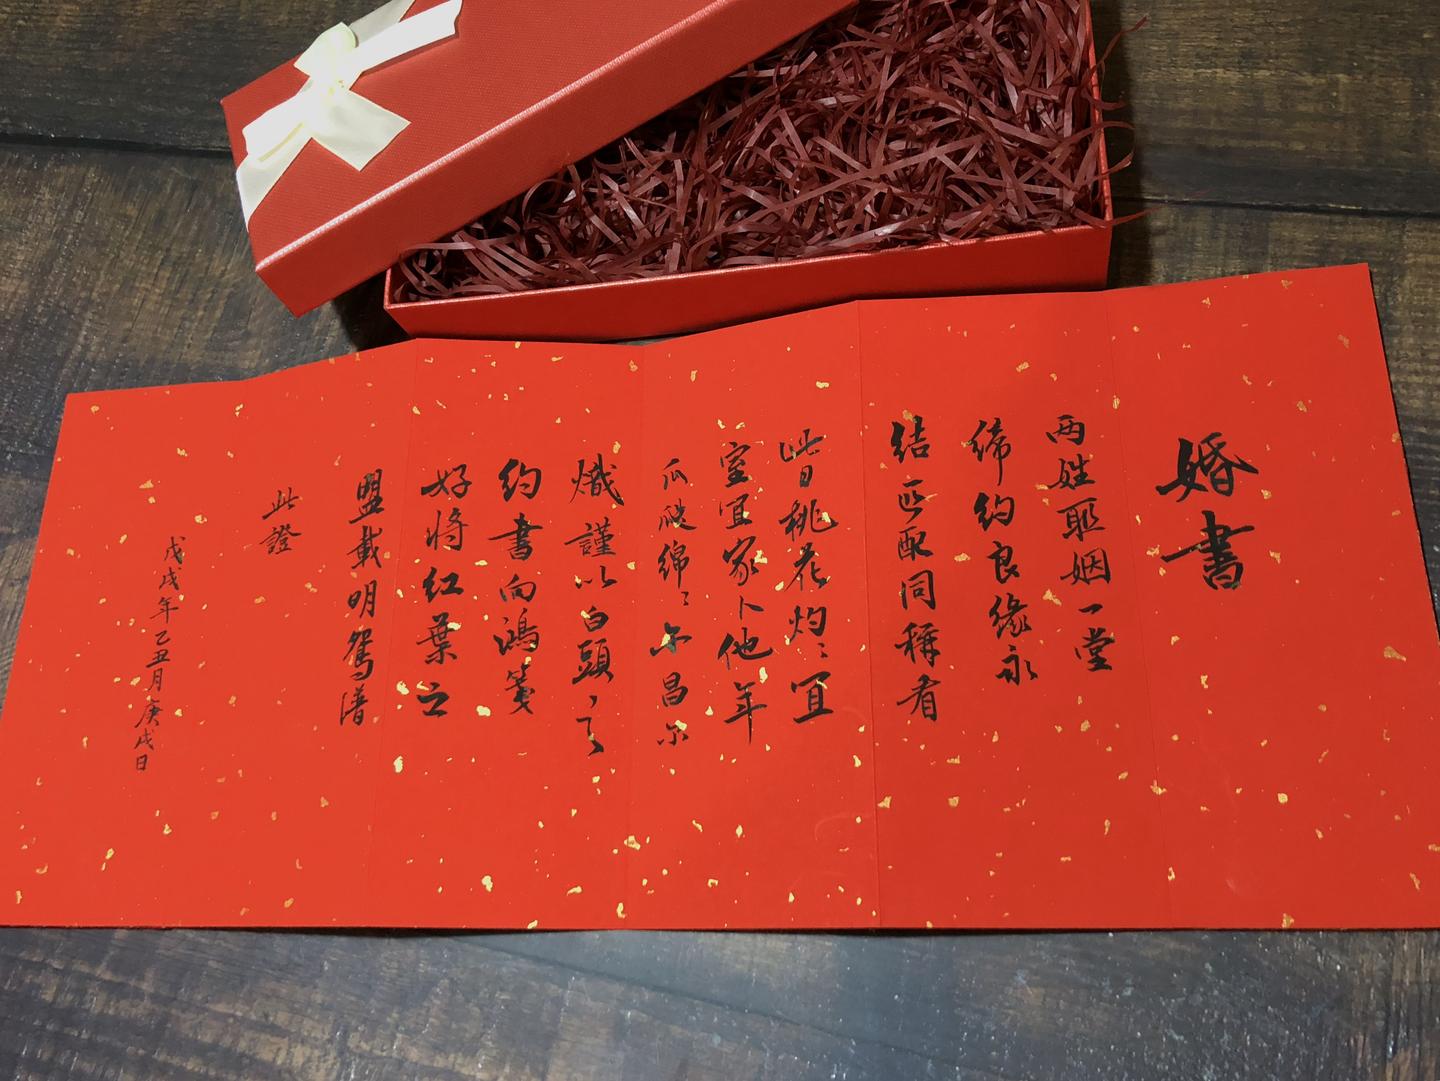 婚書
两姓聯姻一堂
締约良缘永
结匹配同稱看
此日桃花灼〻宜
室宜家卜他年
瓜瓞绵〻尔昌尔
熾謹以白頭之
约書向鴻箋
好将红葉之
盟載明鴛譜
此證
戊戌年乙丑月庚戌日